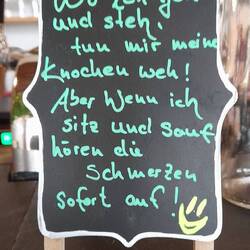 und steh,
tun mir meine
Knochen weh!
Aber wenn ich
sitz und sauf
hören die
Schmerzen
sofort auf!